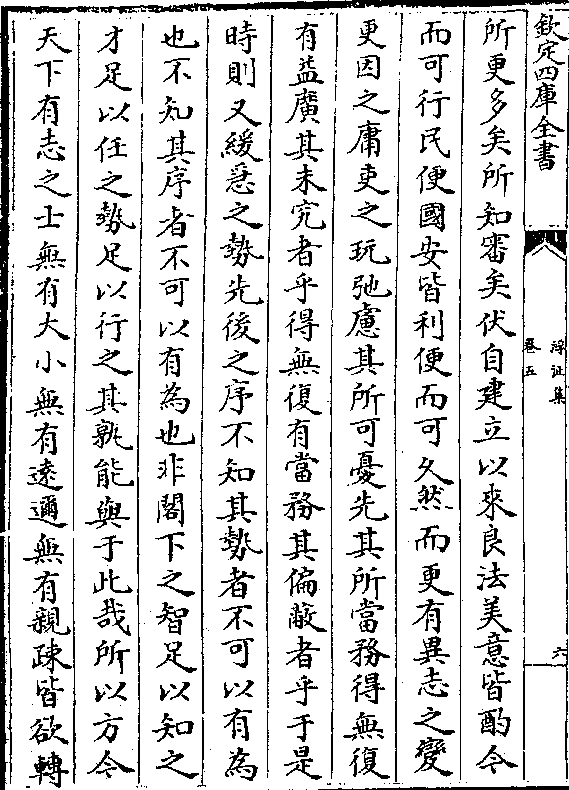 欽定四庫全書
浮沚集
卷五
六
所更多矣所知審矣伏自建立以來良法美意皆酌今
而可行民便國安皆利便而可久然而更有異志之變
更因之庸吏之玩弛慮其所可憂先其所當務得無復
有益廣其未究者乎得無復有當務其偏敝者乎于是
時則又緩急之勢先後之序不知其勢者不可以有為
也不知其序者不可以有為也非閣下之智足以知之
才足以任之勢足以行之其孰能與于此哉所以方今
天下有志之士無有大小無有遠邇無有親疎皆欲轉